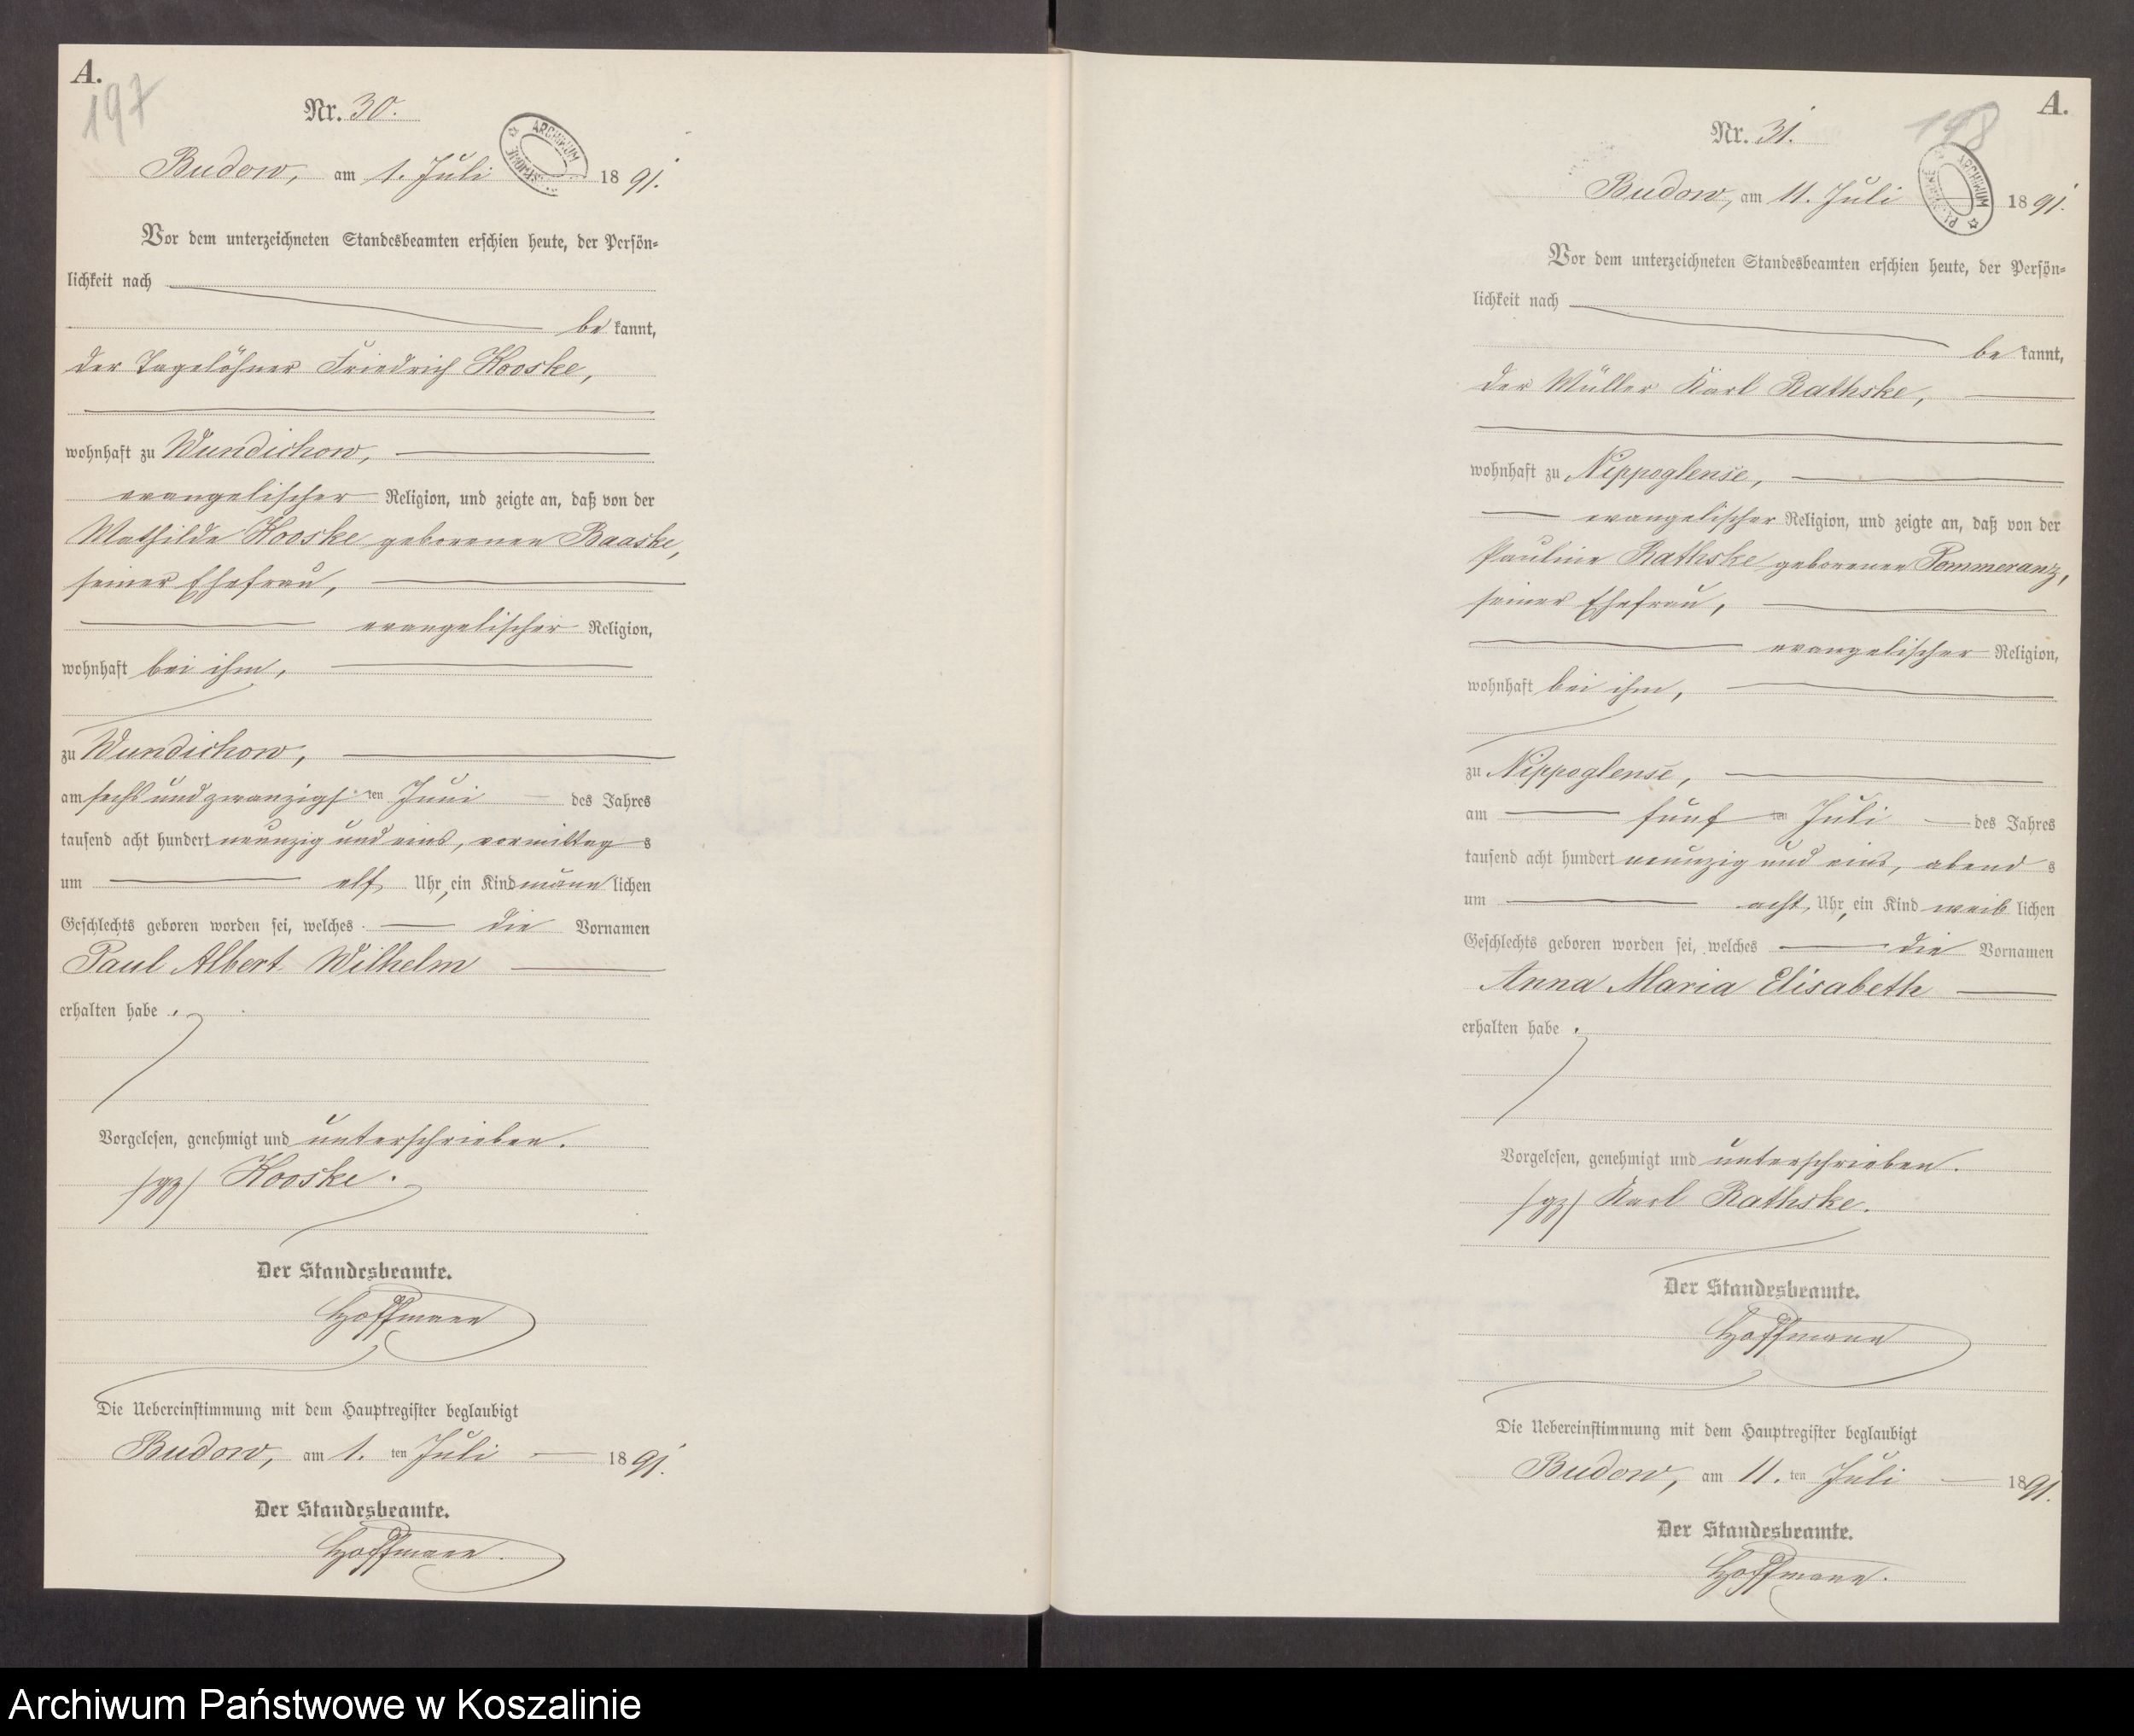 A.
197
Nr. 30.
ARCHIWUM
Budow, am 1. Juli 1891.
Vor dem unterzeichneten Standesbeamten erschien heute, der Persön-
lichkeit nach
be kannt,
der Tagelöhner Friedrich Kooske,
wohnhaft zu Wundichow,
evangelischer Religion, und zeigte an, daß von der
Mathilde Kooske geborenen Baaske,
seiner Ehefrau,
evangelischer Religion,
wohnhaft bei ihm,
zu Wundichow,
am sechs und zwanzigs ten Juni des Jahres
tausend acht hundert neunzig und eins, vormittag s
um elf Uhr, ein Kind männ lichen
Geschlechts geboren worden sei, welches die Vornamen
Paul Albert Wilhelm
erhalten habe.
Vorgelesen, genehmigt und unterschrieben.
(gz) Kooske.
Der Standesbeamte.
Hoffmann
Die Uebereinstimmung mit dem Hauptregister beglaubigt
Budow, am 1. ten Juli 1891.
Der Standesbeamte.
Hoffmann.
A.
198
Nr. 31.
ARCHIWUM
Budow, am 11. Juli 1891.
Vor dem unterzeichneten Standesbeamten erschien heute, der Persön-
lichkeit nach
be kannt,
der Müller Karl Rathske,
wohnhaft zu Nippoglense,
evangelischer Religion, und zeigte an, daß von der
Pauline Rathske geborenen Pommeranz,
seiner Ehefrau,
evangelischer Religion,
wohnhaft bei ihm,
zu Nippoglense,
am fünf ten Juli des Jahres
tausend acht hundert neunzig und eins, abend s
um acht Uhr, ein Kind weib lichen
Geschlechts geboren worden sei, welches die Vornamen
Anna Maria Elisabeth
erhalten habe.
Vorgelesen, genehmigt und unterschrieben.
(gz) Karl Rathske.
Der Standesbeamte.
Hoffmann
Die Uebereinstimmung mit dem Hauptregister beglaubigt
Budow, am 11. ten Juli 1891.
Der Standesbeamte.
Hoffmann.
Archiwum Państwowe w Koszalinie